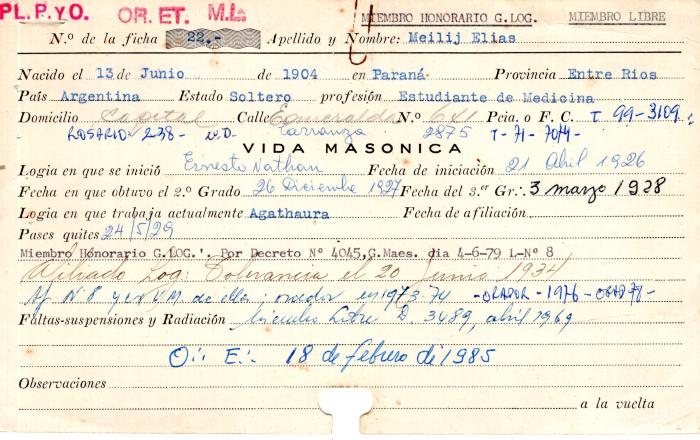 PL. P. YO. OR. ET. M.L. MIEMBRO HONORARIO G.LOG. MIEMBRO LIBRE
N.º de la ficha 22.- Apellido y Nombre: Meilij Elias
Nacido el 13 de Junio de 1904 en Paraná Provincia Entre Rios
País Argentina Estado Soltero profesión Estudiante de Medicina
Domicilio Capital Calle Esmeralda N.º 641 Pcia. o F. C. T. 99-3109
ROSARIO - 238 - Carranza 2875 T-71-7074-
VIDA MASONICA
Logia en que se inició Ernesto Nathan Fecha de iniciación 21 Abril 1926
Fecha en que obtuvo el 2.º Grado 26 Diciembre 1927 Fecha del 3.er Gr∴ 3 marzo 1928
Logia en que trabaja actualmente Agathaura Fecha de afiliación
Pases quites 24/5/29
Miembro Honorario G.LOG.'. Por Decreto Nº 4045,G.Maes. dia 4-6-79 L-Nº 8
Afiliado Log: Tolerancia el 20 Junio 1934
Af. Nº 8 y en V.M. de ella; orador en 1973.74 -ORADOR-1976-ORAD 78-
Faltas-suspensiones y Radiación Miembro Libre D 3489, abril 1969
O∴ E∴ 18 de febrero de 1985
Observaciones
a la vuelta